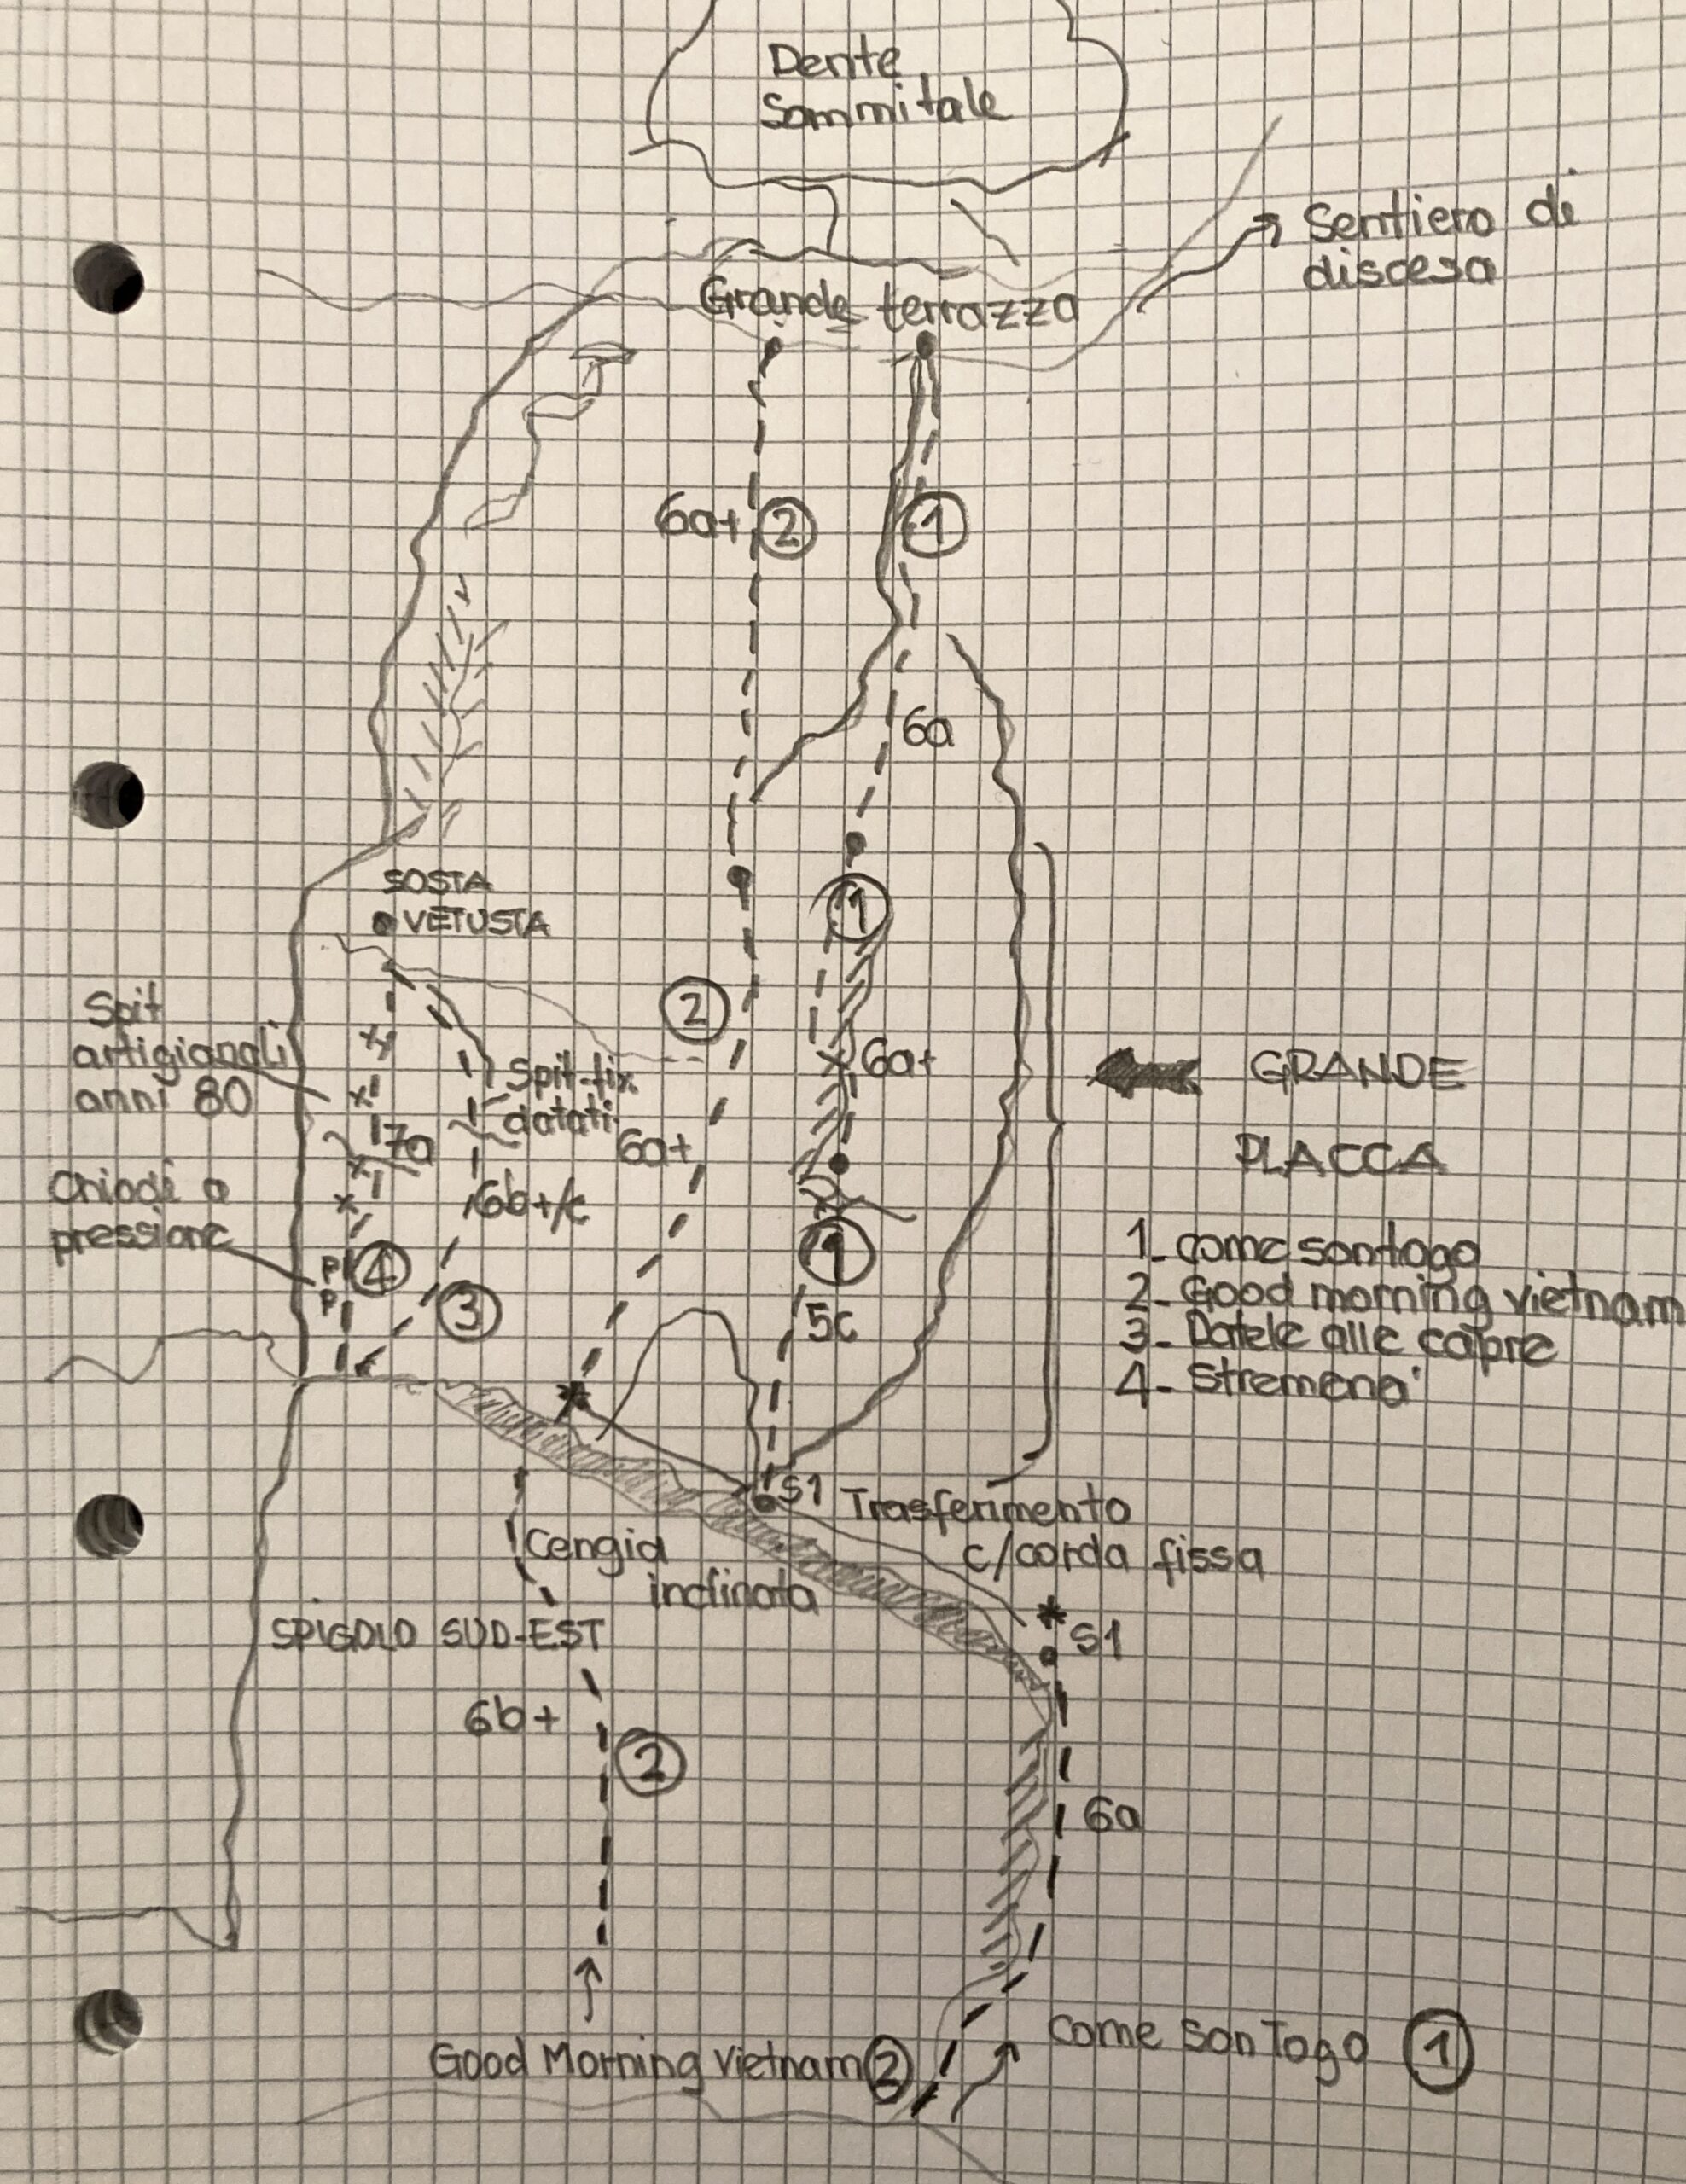 Dente
Sommitale
Sentiero di
discesa
Grande terrazza
6a+ 2
1
6a
SOSTA
VETUSTA
1
2
Spit
artigianali
anni 80
6a+
GRANDE
PLACCA
Spit-fix
datati
7a
6a+
Chiodi a
pressione
6b+/c
P
P
4
3
1
5c
1- come son togo
2- Good morning vietnam
3- Datele alle capre
4- Stremenò
S1
Trasferimento
c/corda fissa
Cengia
inclinata
SPIGOLO SUD-EST
S1
6b+
2
6a
Good Morning Vietnam 2
Come son Togo 1